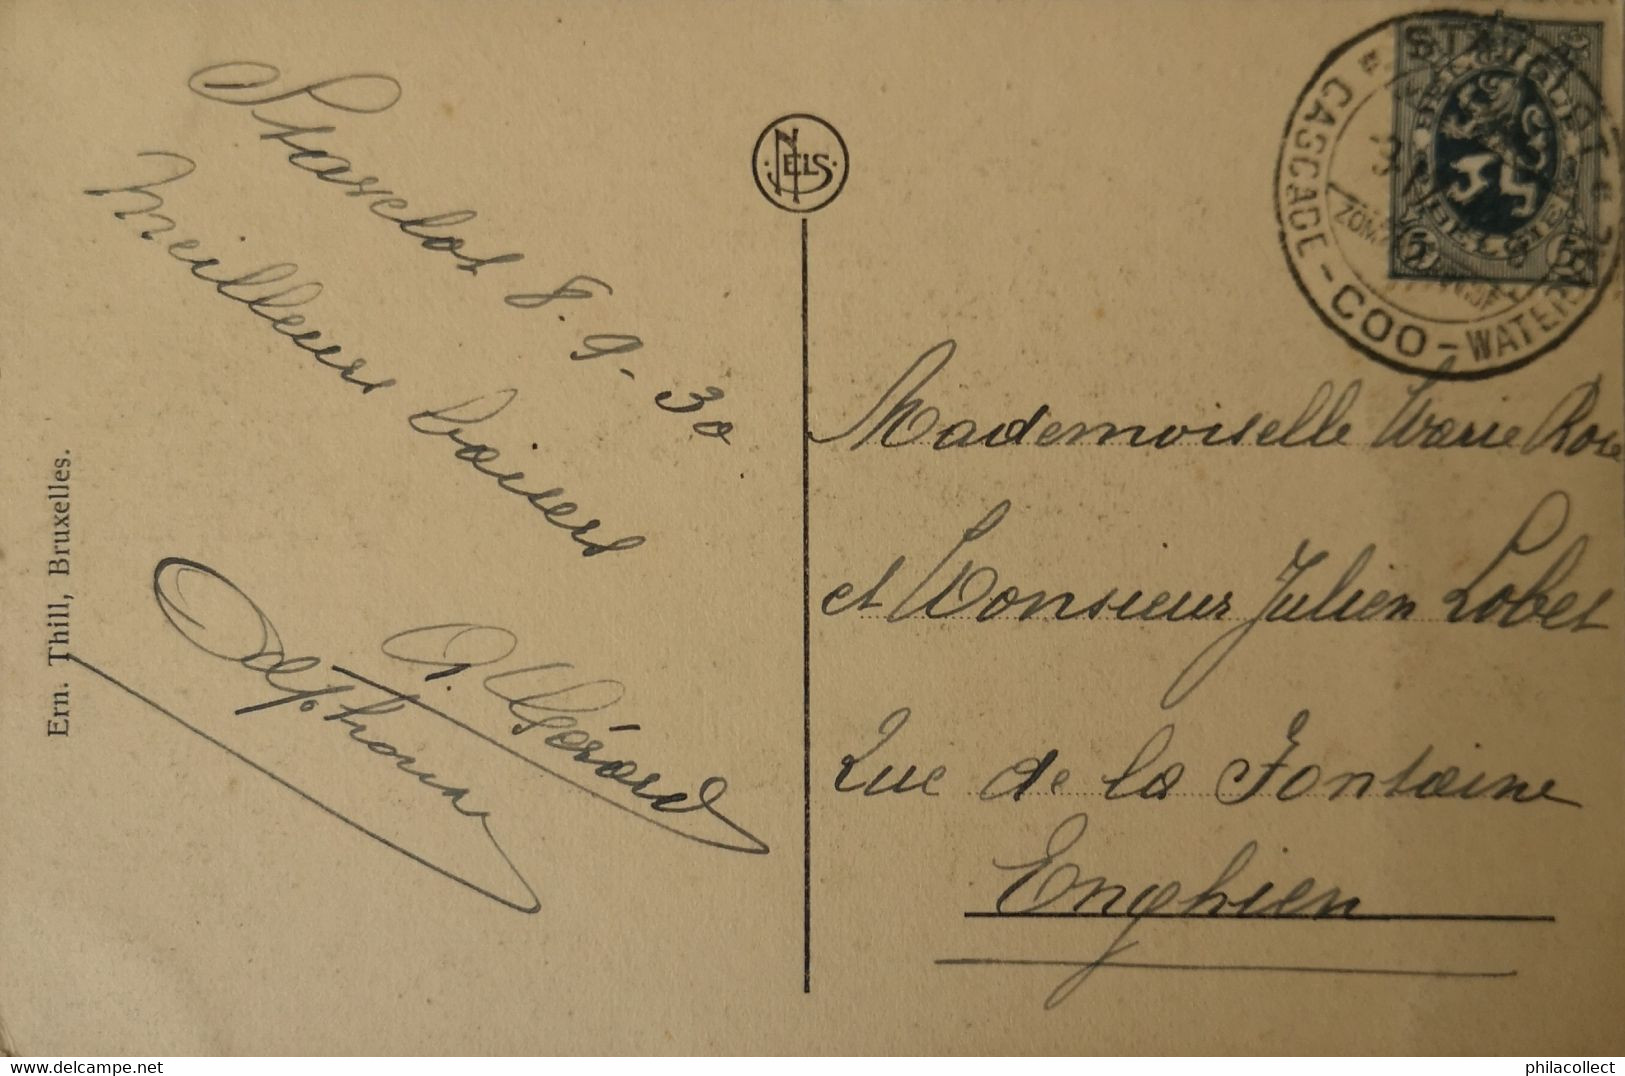 Stavelot 8.9-30
Meilleurs baisers
G. Gérard
Alphonse
Ern. Thill, Bruxelles.
NELS
STAVELOT
CASCADE - COO - WATER
BELGIQUE
BELGIË
5
Mademoiselle Marie Rose
et Monsieur Julien Lobet
Rue de la Fontaine
Enghien
philacollect